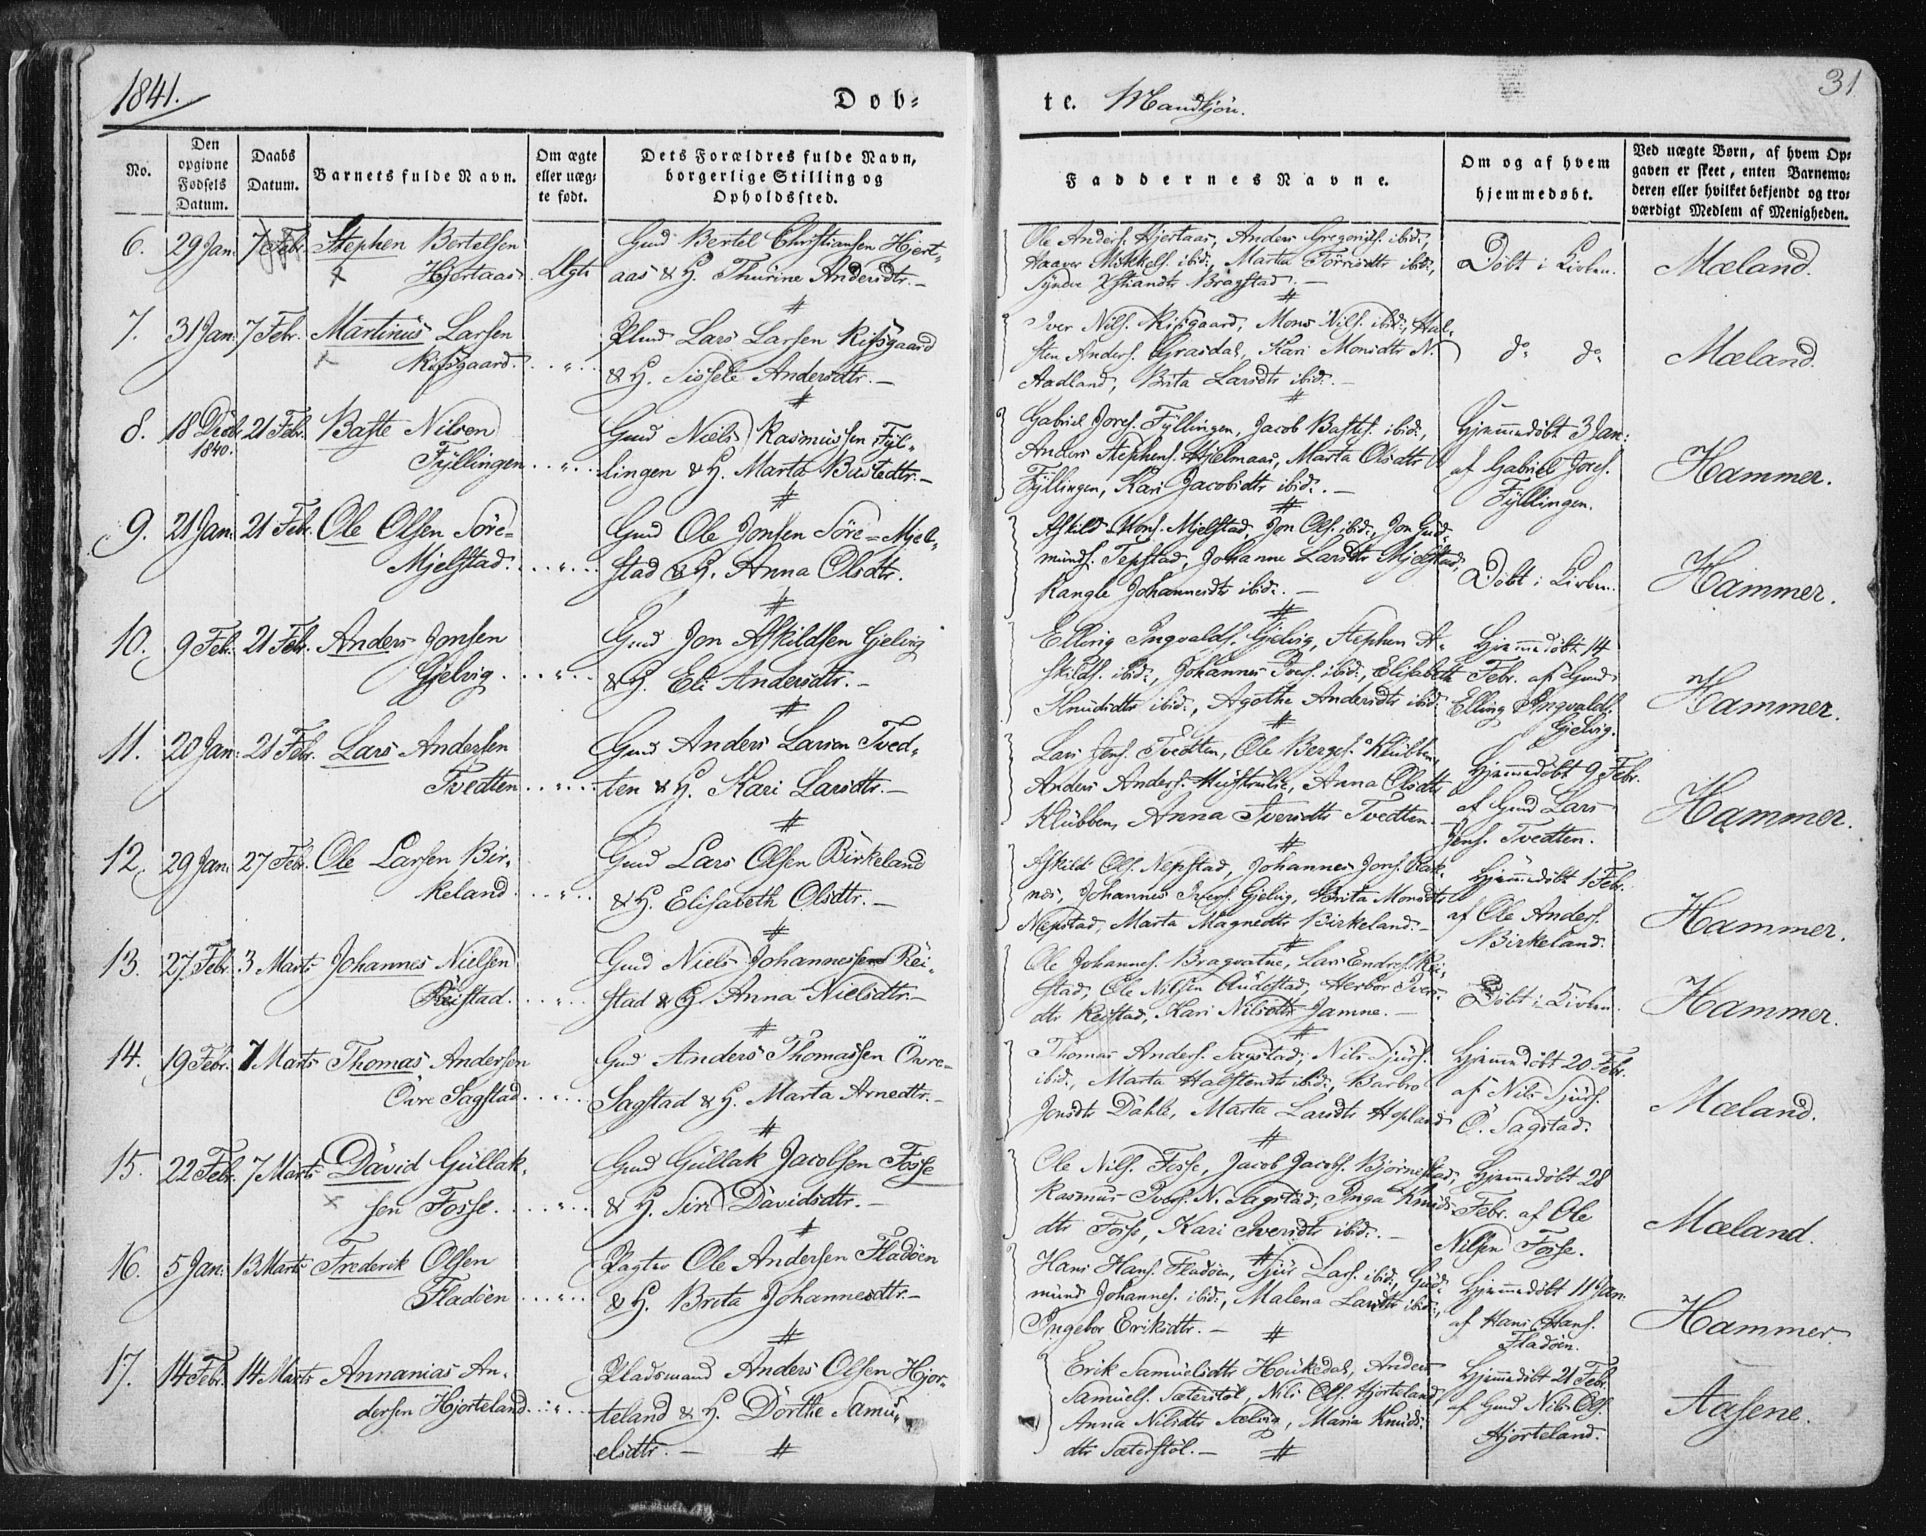 1841.
Døb-
te. Mandkjön.
31
No.
Den opgivne Fødsels Datum.
Daabs Datum.
Barnets fulde Navn.
Om ægte eller uægte født.
Dets Forældres fulde Navn, borgerlige Stilling og Opholdssted.
Faddernes Navne.
Om og af hvem hjemmedøbt.
Ved uægte Børn, af hvem Op-
gaven er skeet, enten Barnemo-
deren eller hvilket bekjendt og tro-
værdigt Medlem af Menigheden.
6. 29 Jan. 7 Febr. Stephen Bertelsen
Hjertaas. Ægte
Gmd Bertel Christiansen Hjert-
aas & H. Thurine Andersdtr. —
Ole Anders. Hjertaas, Anders Gregorius. ibid.,
Haaver Mikkels. ibid., Marta Törrisdtr ibid.,
Synöve Bragstad. —
Döbt i Kirken.
Mæland.
7. 31 Jan. 7 Febr. Martinus Larsen
Kissgaard. . . " .
Plmd Lars Larsen Kissgaard
& H. Sissele Andersdtr. —
Iver Nils. Kissgaard, Mons Nils. ibid., Hal-
sten Anders. Grasdal, Kari Monsdtr N.
Aadland, Brita Larsdtr ibid. —
do do
Mæland.
8. 18 Decbr 1840. 21 Febr. Baste Nilsen
Fyllingen . . " . .
Gmd Niels Rasmussen Fyl-
lingen & H. Marta Bastedtr. —
Gabriel Joces. Fyllingen, Jacob Bastes. ibid.,
Anders Stephens. Hjelmaas, Marta Olsdtr
Fyllingen, Kari Jacobsdtr ibid. —
Hjemmedöbt 3 Jan:
af Gabriel Joces.
Fyllingen.
Hammer.
9. 21 Jan. 21 Febr. Ole Olsen Söre-
Mjelstad. . . " . .
Gmd Ole Jonsen Söre-Mjel-
stad & H. Anna Olsdtr.
Askild Mons. Mjelstad, Jon Ols. ibid., Jon Gud-
munds. Tepstad, Johanne Larsdtr Mjelstad,
Rangle Johannesdtr ibid. —
Döbt i Kirken.
Hammer.
10. 9 Febr. 21 Febr. Anders Jonsen
Gjelvig. . . " . .
Gmd Jon Askildsen Gjelvig
& H. Eli Andersdtr. —
Elling Ingvalds. Gjelvig, Stephen A-
skilds. ibid., Johannes Ivers. ibid., Elisabeth
Knudsdtr ibid., Agothe Andersdtr ibid.
Hjemmedöbt 14
Febr. af Gmd
Elling Ingvalds.
Gjelvig.
Hammer.
11. 20 Jan. 21 Febr. Lars Andersen
Tvedten . . " . .
Gmd Anders Larsen Tved-
ten & H. Kari Larsdtr. —
Lars Jens. Tvedten, Ole Berges. Klubben,
Anders Anders. Anna Olsdtr
Klubben, Anna Iversdtr Tvedten.
Hjemmedöbt 9 Febr.
af Gmd Lars
Jens. Tvedten.
Hammer.
12. 29 Jan. 27 Febr. Ole Larsen Bir-
keland. . . " . .
Gmd Lars Olsen Birkeland
& H. Elisabeth Olsdtr. —
Askild Ols. Nepstad, Johannes Jons. Rek-
nes, Johannes Ivers. Gjelvig, Brita Monsdtr
Nepstad, Marta Magnedtr Birkeland. —
Hjemmedöbt 1 Febr.
af Ole Anders.
Birkeland.
Hammer.
13. 27 Febr. 3 Marts Johannes Nielsen
Reistad. . . " . .
Gmd Niels Johannessen Rei-
stad & H. Anna Nielsdtr. —
Ole Johannes. Bragvatne, Lars Endres. Rei-
stad, Ole Nilsen Audestad, Herbor Ivers-
dtr Reistad, Kari Nilsdtr Jamne. —
Döbt i Kirken.
Hammer.
14. 19 Febr. 7 Marts Thomas Andersen
Övre Sagstad. . . . .
Gmd Anders Thomassen Övre-
Sagstad & H. Marta Arnedtr. —
Thomas Anders. Sagstad, Nils Sjurs.
ibid., Marta Halstendtr ibid., Barbro
Jonsdtr Dahle, Marta Larsdtr Hopland
Hjemmedöbt 20 Febr.
af Nils Sjurs.
Ö. Sagstad.
Mæland.
15. 22 Febr. 7 Marts David Gullak-
sen Fosse. . . " . .
Gmd Gullak Jacobsen Fosse
& H. Siri Davidsdtr. —
Ole Nils. Fosse, Jacob Jacobs. Björnestad,
Rasmus Ivers. N. Sagstad, Inga Knuds-
dtr Fosse, Kari Iversdtr ibid. —
Hjemmedöbt 28
Febr. af Ole
Nilsen Fosse.
Mæland.
16. 5 Jan. 13 Marts Frederik Olsen
Fladöen . . . " . .
Pagter Ole Andersen Fladöen
& H. Brita Johannesdtr. —
Hans Hans. Fladöen, Sjur Lars. ibid., Gud-
mund Johannes. ibid., Malena Larsdtr ibid.,
Ingebor Eriksdtr. —
Hjemmedöbt 11 Jan.
af Hans Hans.
Fladöen.
Hammer
17. 14 Febr. 14 Marts Annanias An-
dersen Hjorteland. . " . .
Pladsmand Anders Olsen Hjor-
teland & H. Dorthe Samu-
elsdtr. —
Erik Samuelsdtr Houkedal, Anders
Samuels. Sæterstöl, Nils Ols. Hjorteland,
Anna Nilsdtr Sælvig, Maria Knuds-
dtr Sæterstöl. —
Hjemmedöbt 21 Febr.
af Gmd Nils Ols.
Hjorteland.
Aasene.